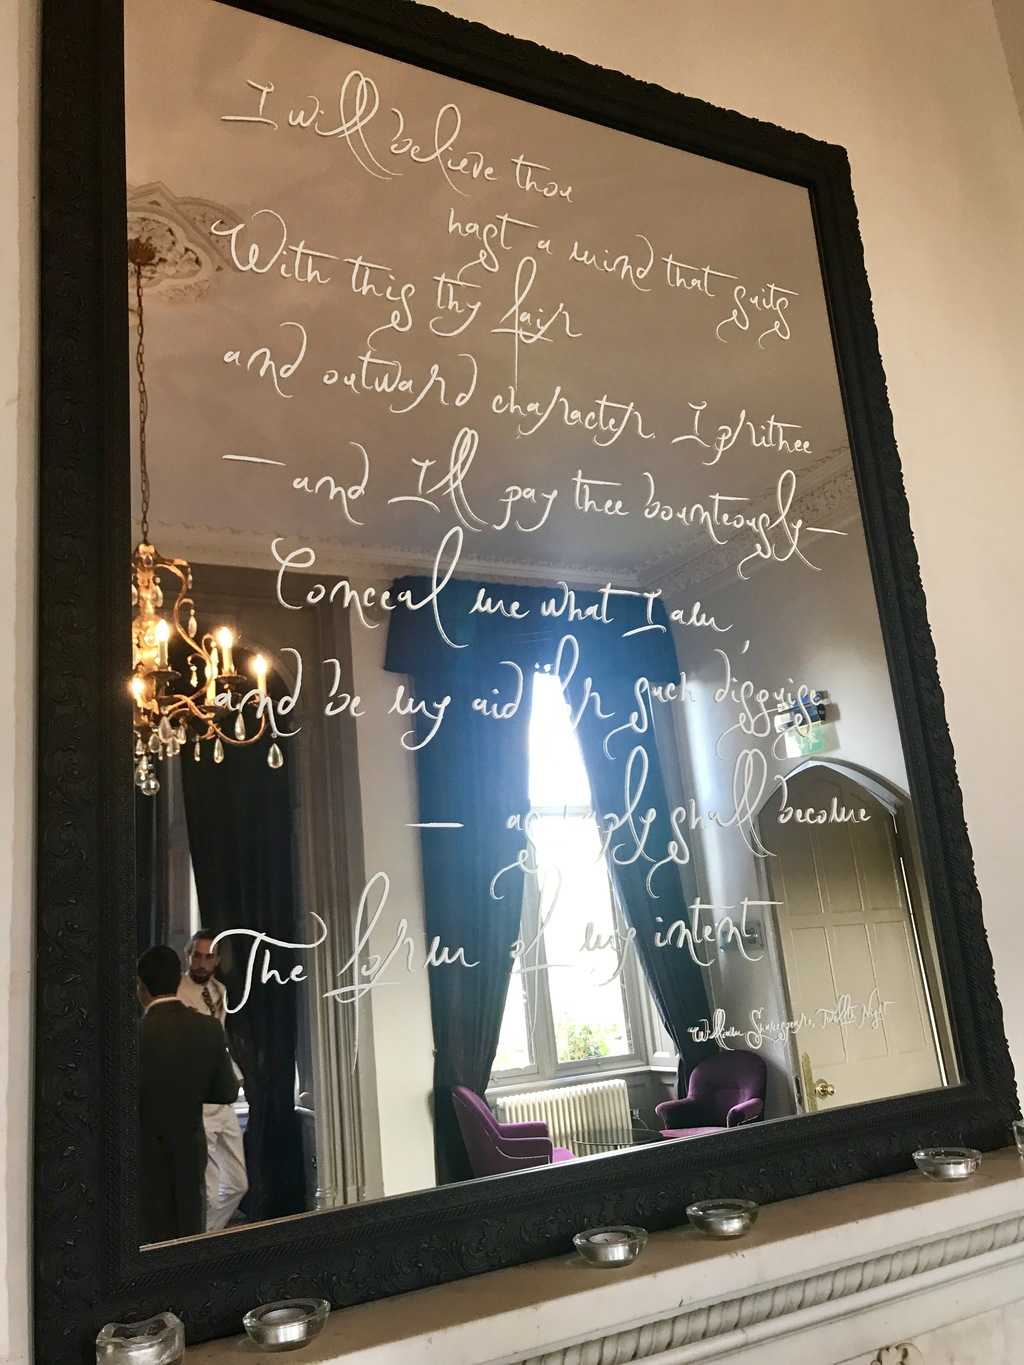 I will believe thou
hast a mind that suits
With this thy fair
and outward character. I prithee
— and I'll pay thee bounteously —
Conceal me what I am,
and be my aid for such disguise
— as haply shall become
The form of my intent
William Shakespeare, Twelfth Night